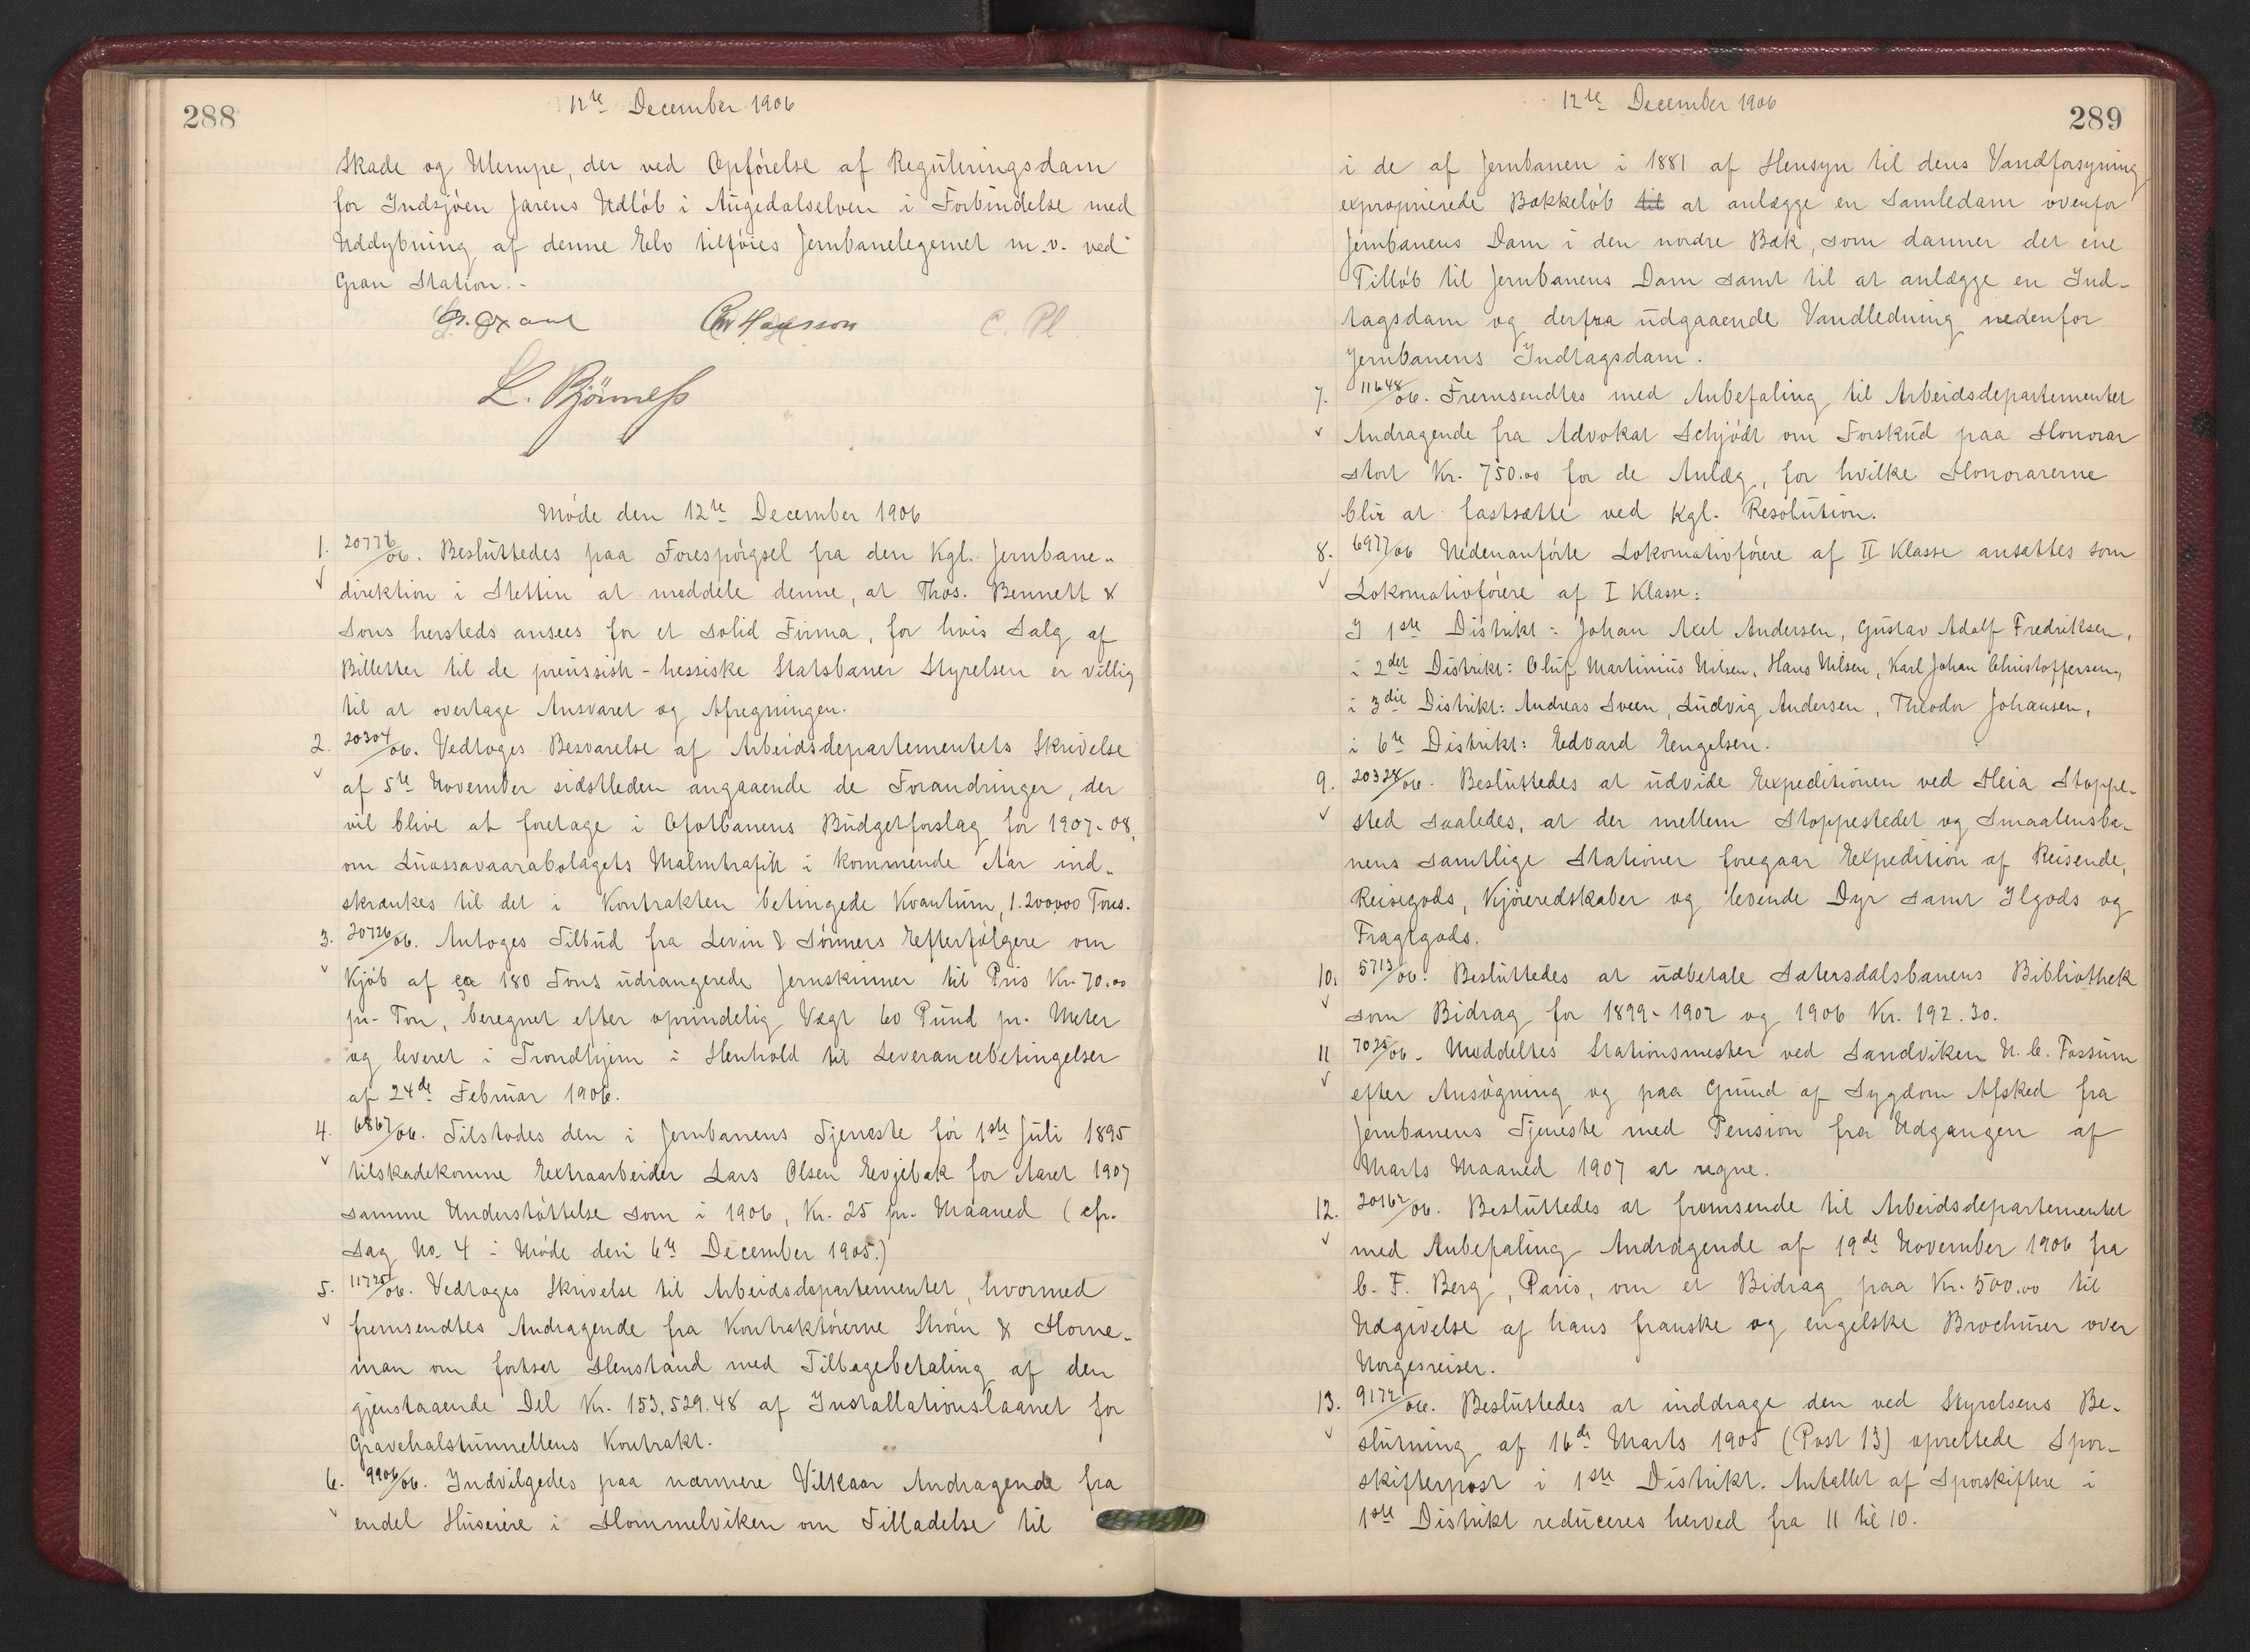 288
12te December 1906
Skade og Ulempe, der ved Opførelse af Reguleringsdam
for Indsjøen Jarens Udløb i Augedalselven i Forbindelse med
Uddybning af denne Elv tilføies Jernbanelegemet m.v. ved
Gran Station.-
Chr. Hansson
C. Pl.
L. Bjørnness
Møde den 12te December 1906
1. 20776/06. Besluttedes paa Forespørgsel fra den Kgl. Jernbane-
direktion i Stettin at meddele denne, at Thos. Bennett &
Sons hersteds ansees for et solid Firma, for hvis Salg af
Billetter til de preussisk-hessiske Statsbaner Styrelsen er villig
til at overtage Ansvaret og Afregningen.
2. 20304/06. Vedtoges Besvarelse af Arbeidsdepartementets Skrivelse
af 5te November sidstleden angaaende de Forandringer, der
vil blive at foretage i Ofotbanens Budgetforslag for 1907-08,
om Luossavaarabolagets Malmtrafik i kommende Aar ind-
skrænkes til det i Kontrakten betingede Kvantum, 1.200,000 Tons.
3. 20726/06. Antoges Tilbud fra Levin & Sønners Efterfølgere om
Kjøb af ca 180 Tons udrangerede Jernskinner til Pris Kr. 70.00
pr. Ton, beregnet efter oprindelig Vægt 60 Pund pr. Meter
og leveret i Trondhjem i Henhold til Leverancebetingelser
af 24de Februar 1906.
4. 6867/06. Tilstodes den i Jernbanens Tjeneste før 1ste Juli 1895
tilskadekomne Extraarbeider Lars Olsen Evjebak for Aaret 1907
samme Understøttelse som i 1906, Kr. 25 pr. Maaned (cfr.
Sag No. 4 i Møde den 6te December 1905.)
5. 11725/06. Vedtoges Skrivelse til Arbeidsdepartementet, hvormed
fremsendtes Andragende fra Kontraktørerne Strøm & Horne-
man om fortsat Henstand med Tilbagebetaling af den
gjenstaaende Del Kr. 153,529.48 af Installationslaanet for
Gravehalstunnellens Kontrakt.
6. 9906/06. Indvilgedes paa nærmere Vilkaar Andragende fra
endel Huseiere i Hommelviken om Tilladelse til
12te December 1906
289
i de af Jernbanen i 1881 af Hensyn til dens Vandforsyning
exproprierede Bækkeløb til at anlægge en Samledam ovenfor
Jernbanens Dam i den nordre Bæk, som danner det ene
Tilløb til Jernbanens Dam samt til at anlægge en Ind-
tagsdam og derfra udgaaende Vandledning nedenfor
Jernbanens Indtagsdam.
7. 11648/06. Fremsendtes med Anbefaling til Arbeidsdepartementet
Andragende fra Advokat Schjødt om Forskud paa Honorar
stort Kr. 750.00 for de Anlæg, for hvilke Honorarerne
blir at fastsætte ved Kgl. Resolution.
8. 6977/06 Nedenanførte Lokomotivførere af II Klasse ansattes som
Lokomotivførere af I Klasse:
I 1ste Distrikt: Johan Axel Andersen, Gustav Adolf Fredriksen,
i 2det Distrikt: Oluf Martinius Nilsen, Hans Nilsen, Karl Johan Christoffersen,
i 3die Distrikt: Andreas Sveen, Ludvig Andersen, Theodor Johansen,
i 6te Distrikt: Edvard Engelsen.
9. 20328/06. Besluttedes at udvide Expeditionen ved Heia Stoppe-
sted saaledes, at der mellem Stoppestedet og Smaalensba-
nens samtlige Stationer foregaar Expedition af Reisende,
Reisegods, Kjøreredskaber og levende Dyr samt Ilgods og
Fragtgods.
10. 5713/06. Besluttedes at udbetale Sætersdalsbanens Bibliothek
som Bidrag for 1899-1902 og 1906 Kr. 192.30.
11 7025/06. Meddeltes Stationsmester ved Sandviken N. C. Fossum
efter Ansøgning og paa Grund af Sygdom Afsked fra
Jernbanens Tjeneste med Pension fra Udgangen af
Marts Maaned 1907 at regne.
12. 20162/06. Besluttedes at fremsende til Arbeidsdepartementet
med Anbefaling Andragende af 19de November 1906 fra
C. F. Berg, Paris, om et Bidrag paa Kr. 500.00 til
Udgivelse af hans franske og engelske Brochurer over
Norgesreiser.
13. 9172/06. Besluttedes at inddrage den ved Styrelsens Be-
slutning af 16de Marts 1905 (Post 13) oprettede Spor-
skifterpost i 1ste Distrikt. Antallet af Sporskiftere i
1ste Distrikt reduceres herved fra 11 til 10.